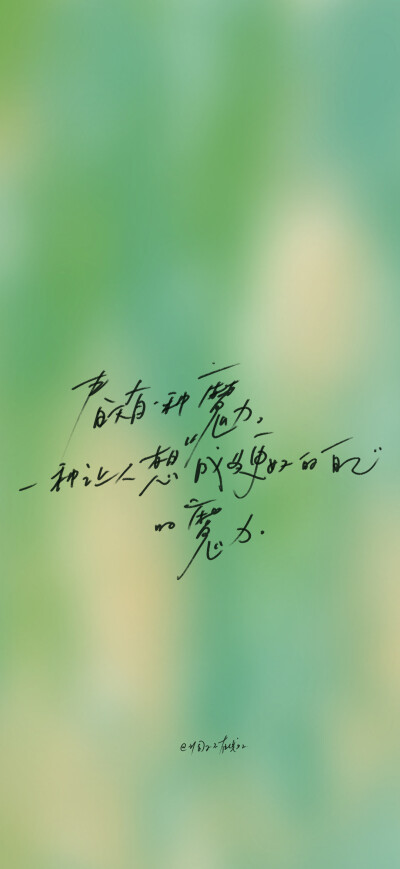 春天有一种魔力，
一种让人想成为更好的自己
的魔力.